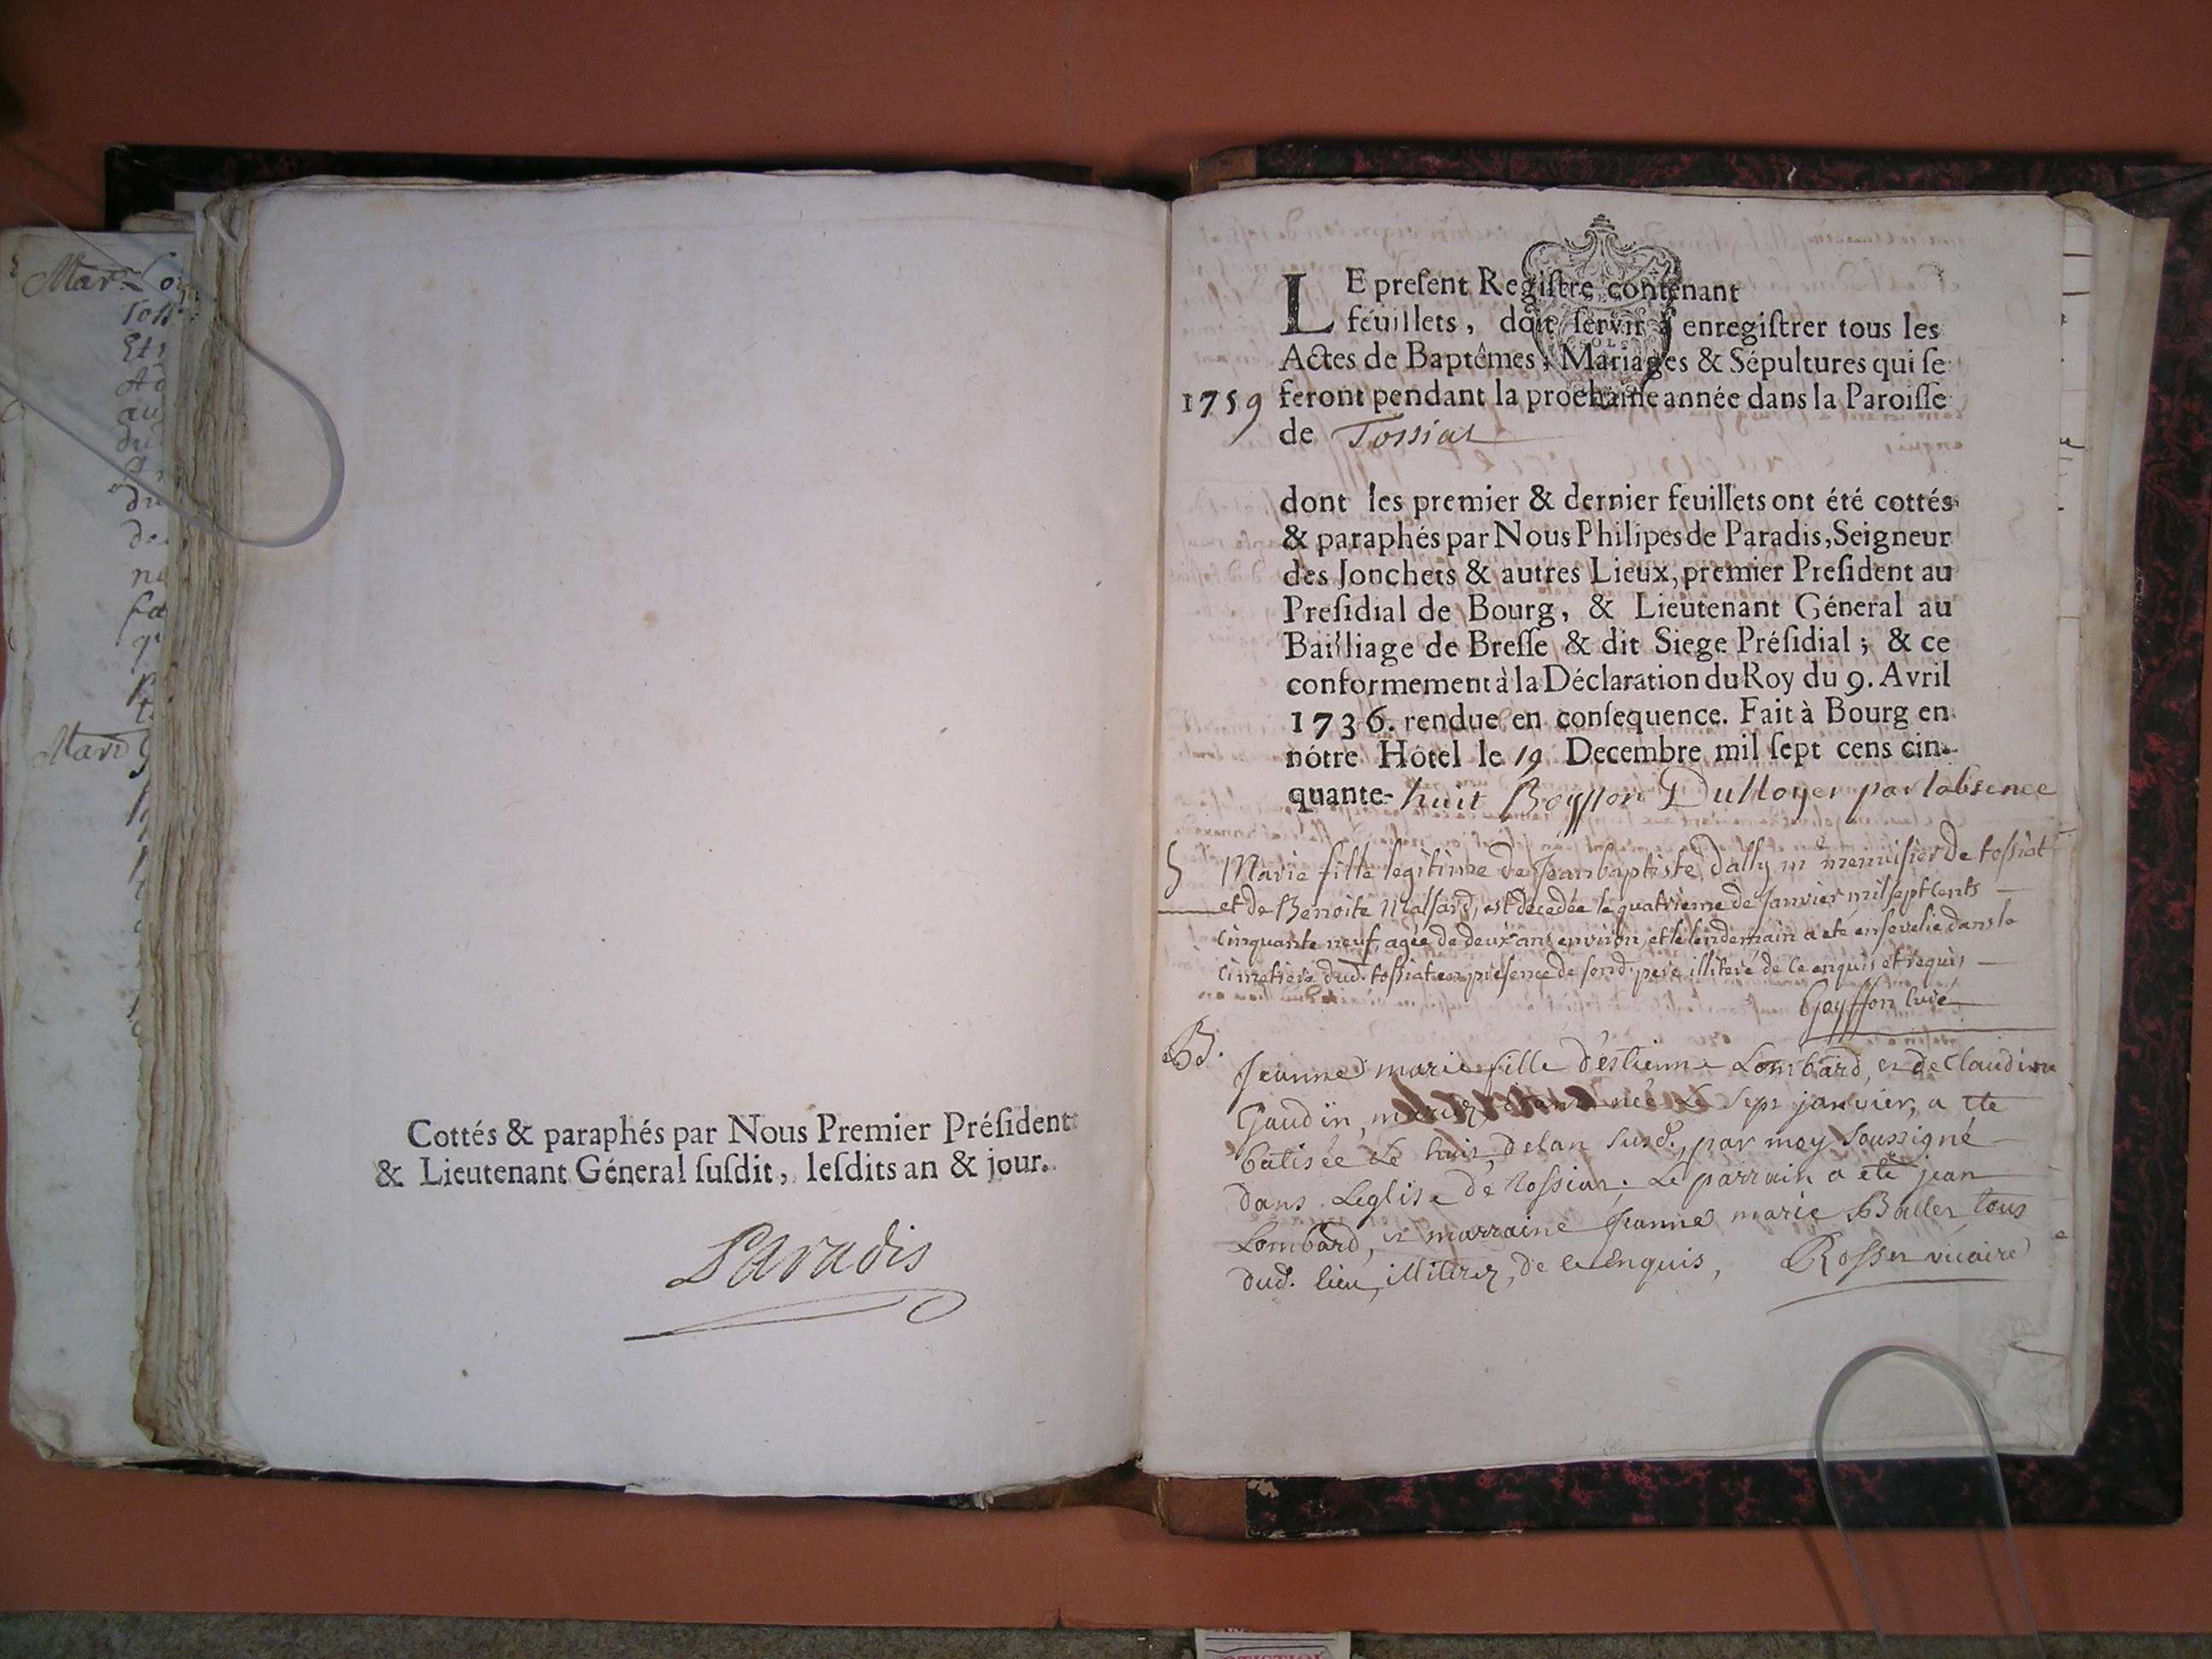 Cottés & paraphés par Nous Premier Préſident
& Lieutenant Géneral ſuſdit, leſdits an & jour.
Paradis
LE preſent Regiſtre contenant
feuillets, doit ſervir à enregiſtrer tous les
Actes de Baptêmes, Mariages & Sépultures qui ſe
1759 feront pendant la prochaine année dans la Paroiſſe
de Tossiat
dont les premier & dernier feuillets ont été cottés
& paraphés par Nous Philipes de Paradis, Seigneur
des Jonchets & autres Lieux, premier Preſident au
Preſidial de Bourg, & Lieutenant Géneral au
Bailliage de Breſſe & dit Siege Préſidial ; & ce
conformement à la Déclaration du Roy du 9. Avril
1736. rendue en conſequence. Fait à Bourg en
nôtre Hôtel le 19 Decembre mil ſept cens cin-
quante-huit par labsence
S Marie fille legitime de Jeanbaptiste dally me menuisier de toſsiat
et de Benoite, est décedée le quatrieme de Janvier mil sept cents
cinquante neuf, agée de deux ans environ, et le lendemain a été ensevelie dans le
cimetiere dud. toſsiat en présence de sond. pere illiteré de ce enquis et requis
Goyffon Curé
B. Jeanne marie fille d'estienne Lombard, et de Claudine
Gaudin, mariez, née Le sept janvier, a ete
batisée Le huit, delan susd., par moy soussigné
dans Leglise de toſsiat. Le parrain a eté jean
Lombard, et marraine jeanne marie Ballet tous
dud. lieu, illiterez, de ce enquis, Roſset vicaire
Marn
Marn